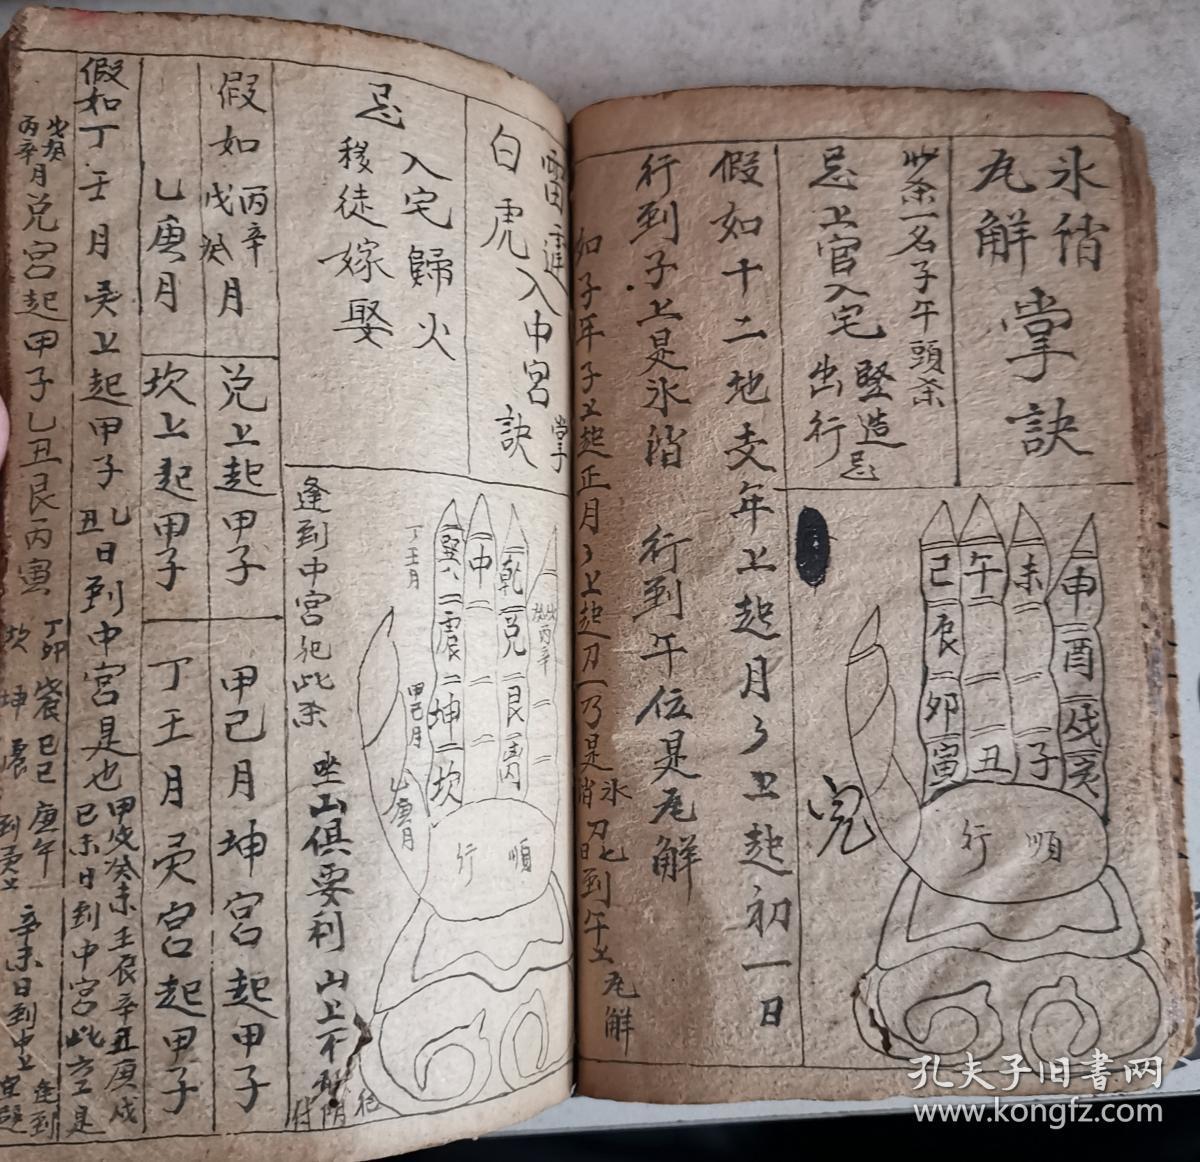 氷消
瓦解
掌訣
此杀一名子午頭杀
忌上官入宅
竪造忌
出行
申酉戌亥
未
子
午
丑
巳辰卯寅
順行
假如十二地支年上起月了上起初一日
行到子上是氷消 行到午位是瓦解
如子年子上起正月了上起刀一乃是氷消刀七日到午上瓦解
入中宮訣
白虎
掌
忌
入宅歸火
移徒嫁娶
乾兌艮离
中
巽震坤坎
丁壬月
甲己月
乙庚月
丙辛
順行
逢到中宮犯此杀 坐山俱要利 山上不
假如
丙辛
戊癸
月
兌上起甲子
甲己月坤宮起甲子
乙庚月
坎上起甲子
丁壬月巽宮起甲子
假如丁壬月巽上起甲子乙丑日到中宮是也
甲戌癸未壬辰辛丑庚戌
己未日到中宮此立是
戊癸
丙辛月
兌宮起甲子乙丑艮丙寅
丁卯
坎
坤
己巳
震
庚午
到巽上
辛未日到中上
逢到